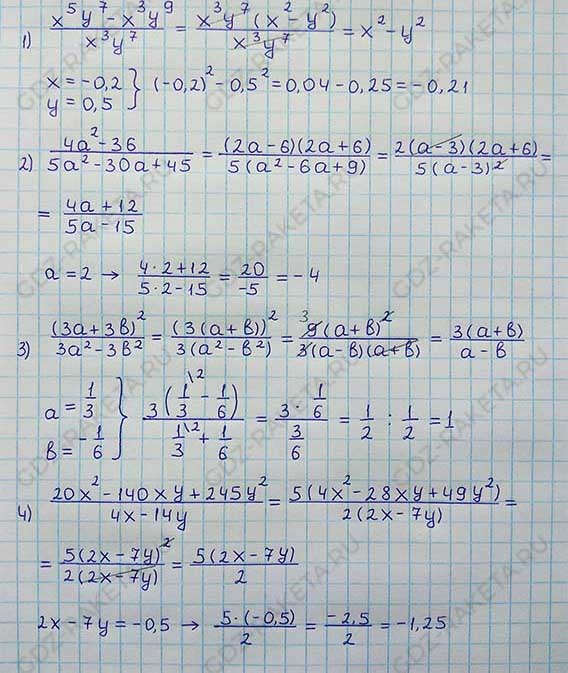 1) (x⁵y⁷ - x³y⁹)/(x³y⁷) = (x³y⁷(x² - y²))/(x³y⁷) = x² - y²
x = -0,2
y = 0,5 } (-0,2)² - 0,5² = 0,04 - 0,25 = -0,21
2) (4a² - 36)/(5a² - 30a + 45) = ((2a - 6)(2a + 6))/(5(a² - 6a + 9)) = (2(a - 3)(2a + 6))/(5(a - 3)²) =
= (4a + 12)/(5a - 15)
a = 2 → (4·2 + 12)/(5·2 - 15) = 20/-5 = -4
3) (3a + 3в)²/(3a² - 3в²) = (3(a + в))²/(3(a² - в²)) = ³9(a + в)²/(3(a - в)(a + в)) = 3(a + в)/(a - в)
a = 1/3
в = -1/6 } 3(1/3\² - 1/6)/(1/3\² + 1/6) = (3·1/6)/(3/6) = 1/2 : 1/2 = 1
4) (20x² - 140xy + 245y²)/(4x - 14y) = 5(4x² - 28xy + 49y²)/(2(2x - 7y)) =
= 5(2x - 7y)²/(2(2x - 7y)) = 5(2x - 7y)/2
2x - 7y = -0,5 → 5·(-0,5)/2 = -2,5/2 = -1,25
GDZ-RAKETA.RU